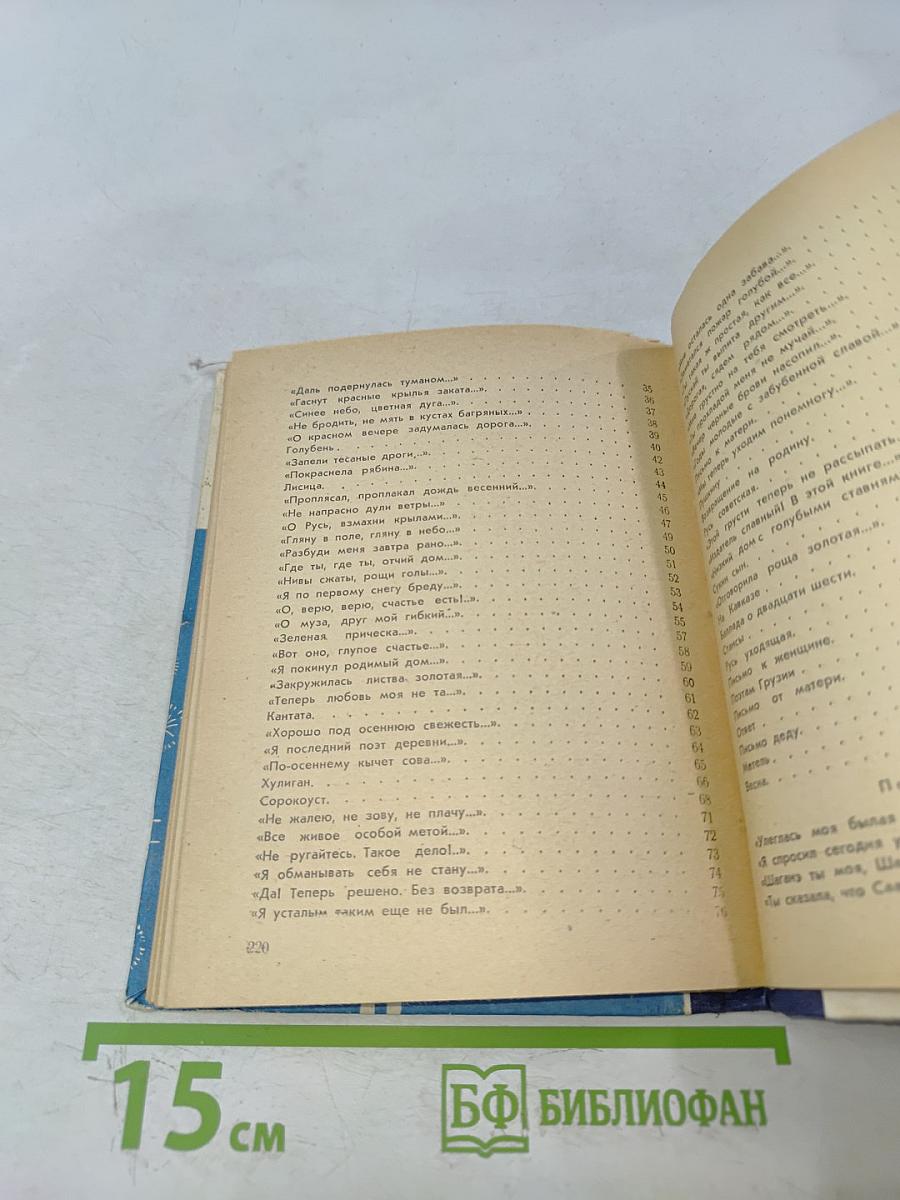 «Даль подернулась туманом...» 35
«Гаснут красные крылья заката...». 36
«Синее небо, цветная дуга...». 37
«Не бродить, не мять в кустах багряных...» 38
«О красном вечере задумалась дорога...». 39
Голубень. 40
«Запели тесаные дроги...». 42
«Покраснела рябина...». 43
Лисица. 44
«Проплясал, проплакал дождь весенний...». 45
«Не напрасно дули ветры...» 46
«О Русь, взмахни крылами...». 47
«Гляну в поле, гляну в небо...» 49
«Разбуди меня завтра рано...». 50
«Где ты, где ты, отчий дом...». 51
«Нивы сжаты, рощи голы...». 52
«Я по первому снегу бреду...». 53
«О, верю, верю, счастье есть!..». 54
«О муза, друг мой гибкий...». 55
«Зеленая прическа...». 57
«Вот оно, глупое счастье...». 58
«Я покинул родимый дом...». 59
«Закружилась листва золотая...». 60
«Теперь любовь моя не та...». 61
Кантата. 62
«Хорошо под осеннюю свежесть...». 63
«Я последний поэт деревни...». 64
«По-осеннему кычет сова...». 65
Хулиган. 66
Сорокоуст. 68
«Не жалею, не зову, не плачу...». 71
«Все живое особой метой...». 72
«Не ругайтесь. Такое дело!..». 73
«Я обманывать себя не стану...». 74
«Да! Теперь решено. Без возврата...». 75
«Я усталым таким еще не был...». 76
220
осталась одна забава...».
пожар голубой...».
такая ж простая, как все...».
ты выпита другим...».
сядем рядом...».
грустно на тебя смотреть...».
меня не мучай...».
черные брови насопил...».
молодые с забубенной славой...»
Письмо к матери.
теперь уходим понемногу...».
Пушкину
Возвращение на родину.
Русь советская.
«Этой грусти теперь не рассыпать
«Издатель славный! В этой книге...»
«Низкий дом с голубыми ставням
Сукин сын.
«Отговорила роща золотая...».
На Кавказе
Баллада о двадцати шести.
Стансы
Русь уходящая.
Письмо к женщине.
Поэтам Грузии
Письмо от матери.
Ответ
Письмо деду.
Метель.
Весна.
«Улеглась моя былая
«Я спросил сегодня у
«Шаганэ ты моя, Ша
«Ты сказала, что Саа
15 см
БФ БИБЛИОФАН